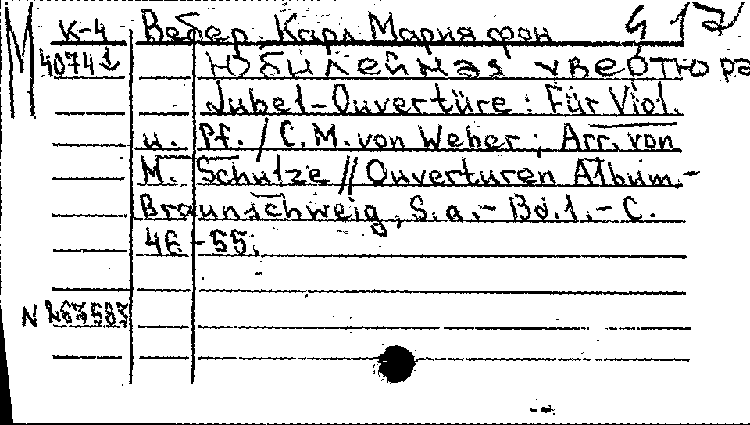 М К-4 Вебер, Карл Мария фон
4074 Юбилейная увертюра
Jubel-Ouvertüre : Für Viol.
u. Pf. / C. M. von Weber ; Arr. von
M. Schulze // Ouverturen Album.-
Braunschweig, S. a. - Bd. 1. - С.
46-55.
N 267583